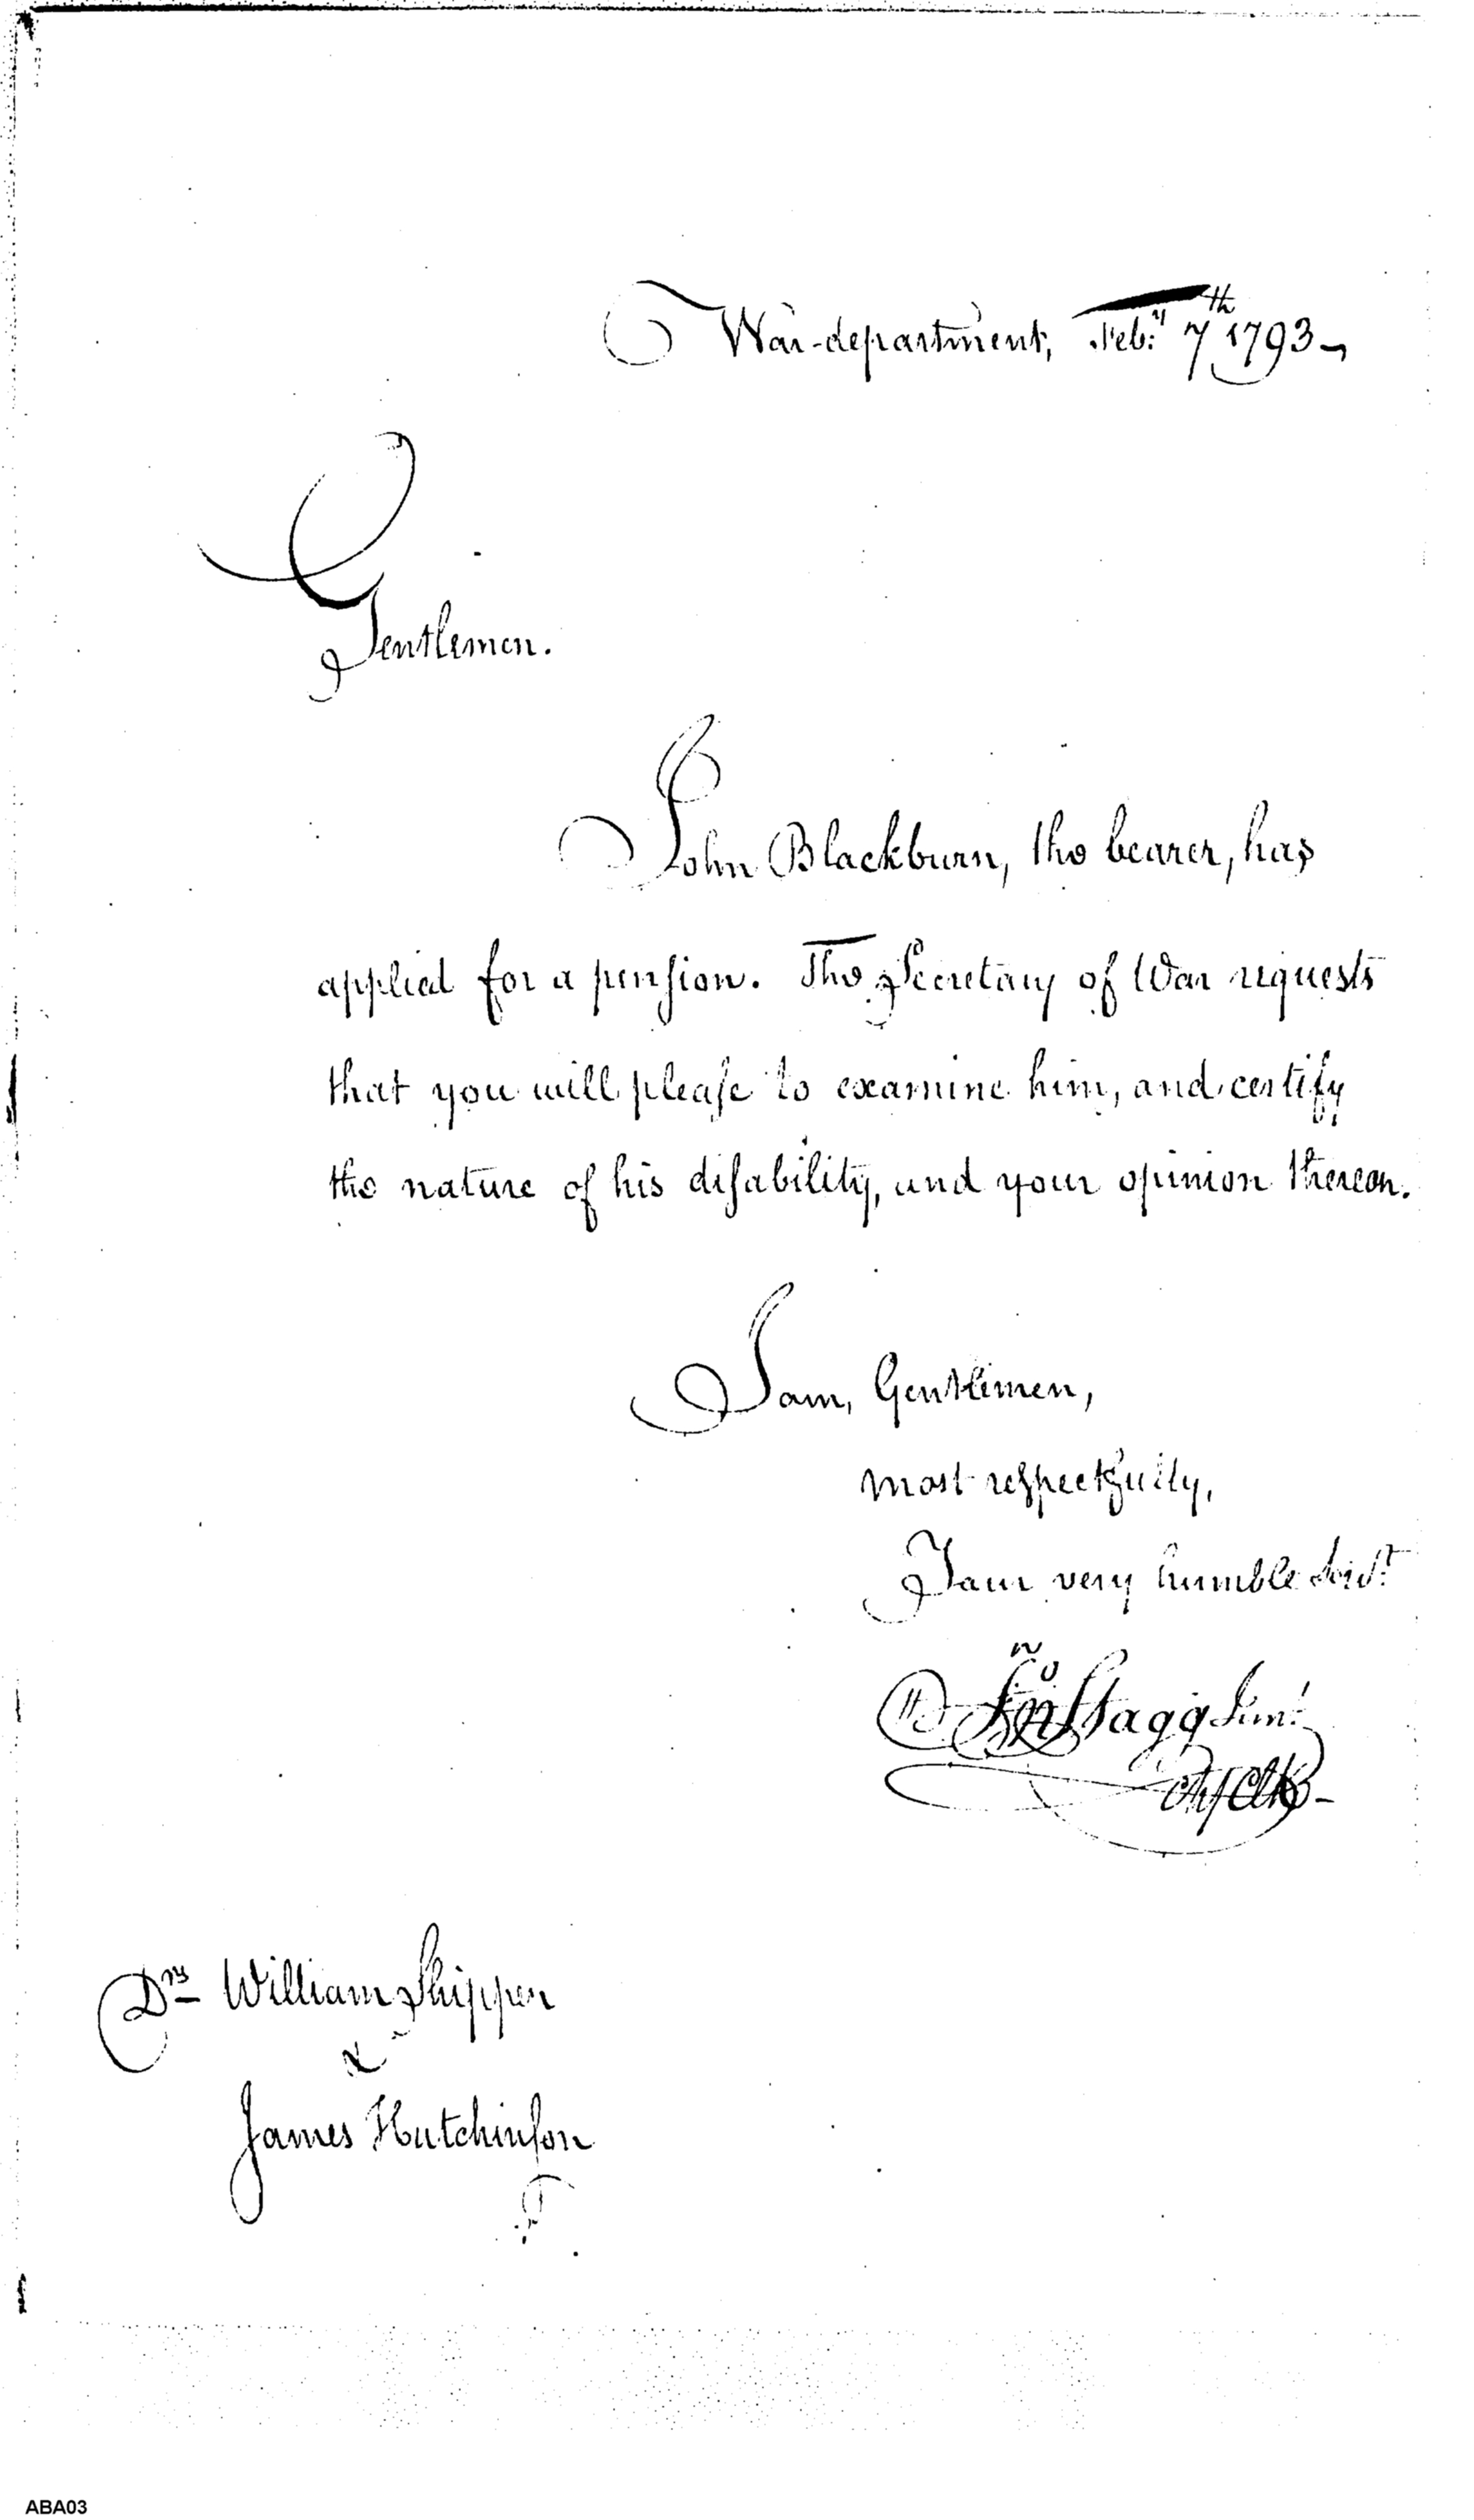 War-department, Feb:y 7th 1793
Gentlemen.
John Blackburn, the bearer, has
applied for a penſion. The Secretary of War requests
that you will pleaſe to examine him, and certify
the nature of his diſability, and your opinion thereon.
I am, Gentlemen,
most reſpectfully,
Your very humble Serv.t
Jn.o Stagg Jun.r
Ch.f Clk
Drs William Shippen
&
James Hutchinſon
ABA03